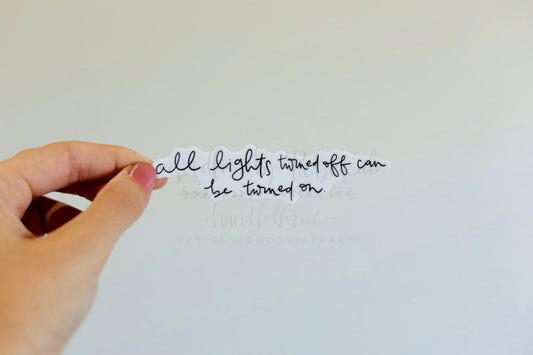 all lights turned off can
be turned on
handlettered
DESIGNS•GOODS•APPAREL